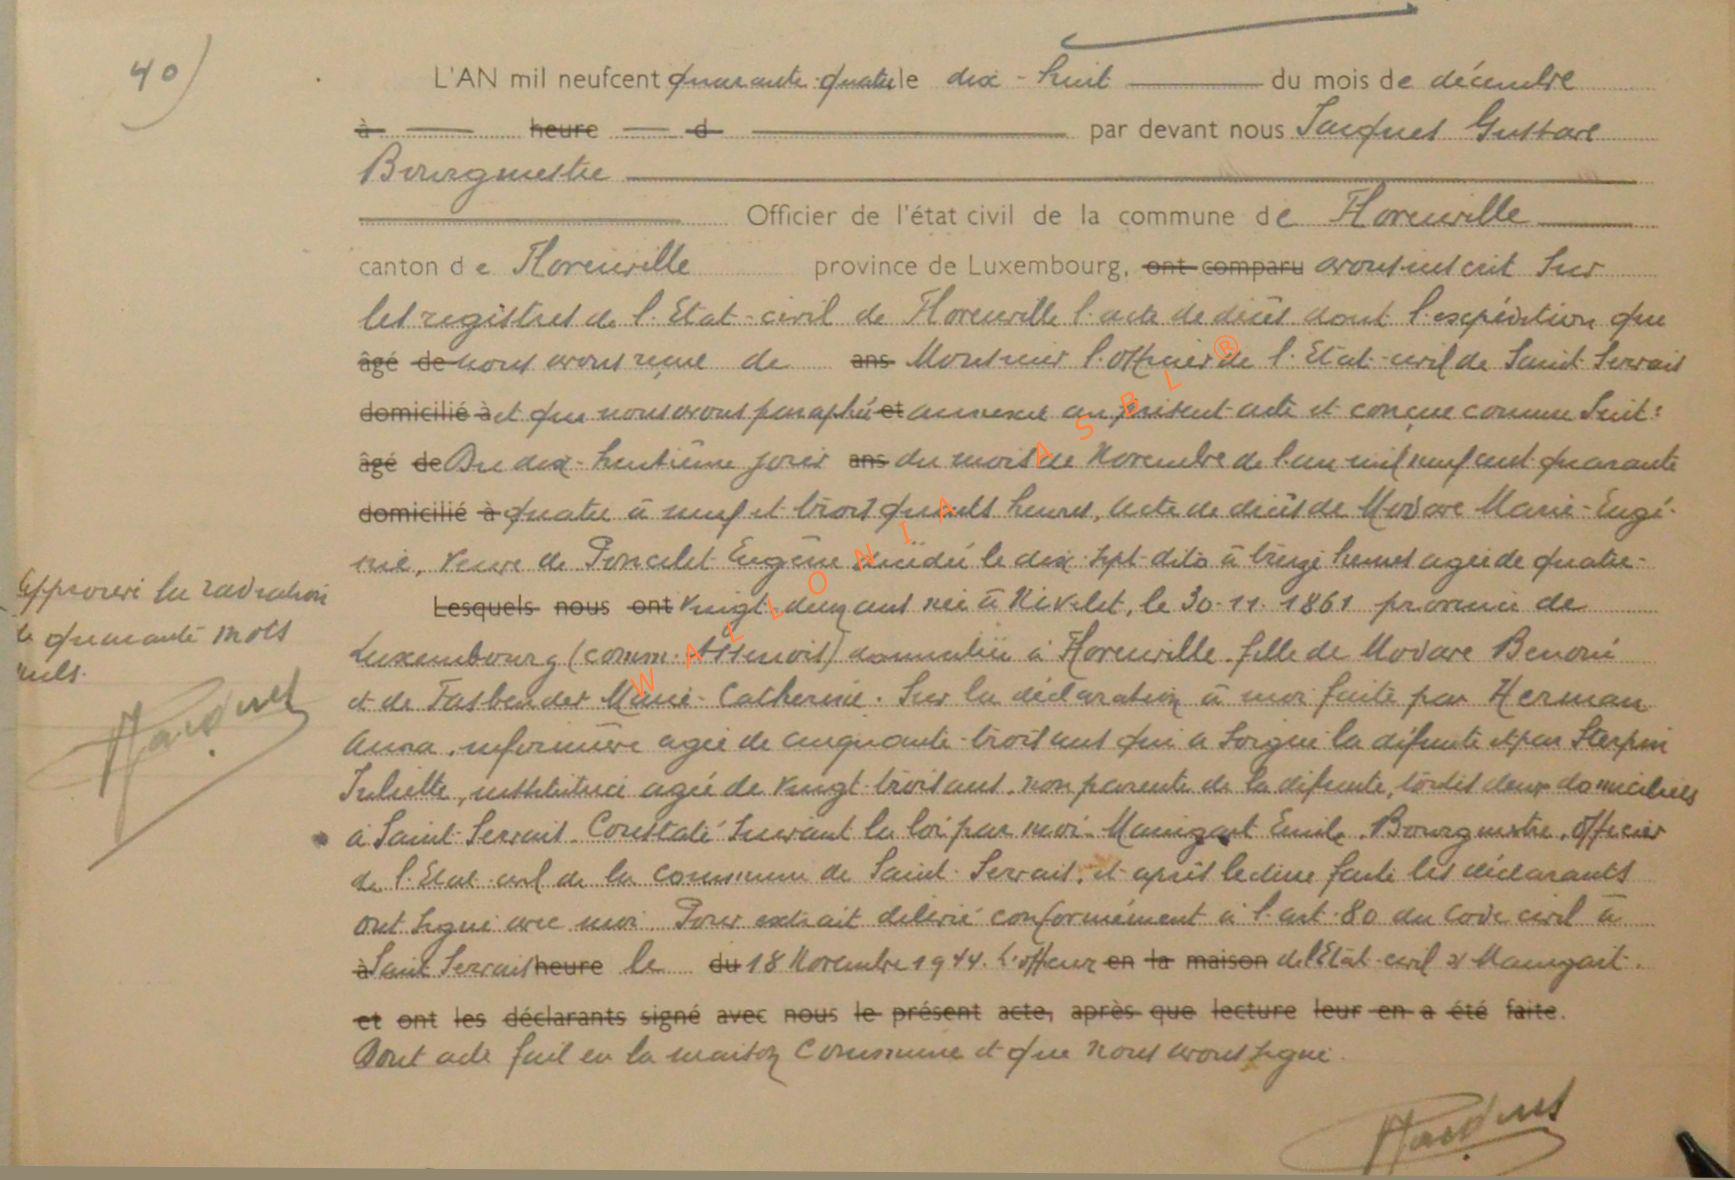 40)
L'AN mil neufcent quarante-quatre le dix-huit du mois de décembre
à heure d par devant nous Jacques Gustave
Bourgmestre
Officier de l'état civil de la commune de Florenville
canton de Florenville province de Luxembourg, ont comparu avons inscrit sur
les registres de l'Etat-civil de Florenville l'acte de décès dont l'expédition que
âgé de nous avons reçue de ans Monsieur l'officier de l'Etat-civil de Saint-Servais
domicilié à et que nous avons paraphé et annexée au présent acte et conçue comme suit:
âgé de Du dix-huitième jour ans du mois de Novembre de l'an mil neuf cent quarante
domicilié à quatre à neuf et trois quarts heures, acte de décès de Modave Marie-Eugé-
nie, veuve de Poncelet Eugène décédée le dix-sept dito à treize heures agée de quatre-
Lesquels nous ont vingt-deux ans née à Nivelet, le 30-11-1861 province de
Luxembourg (comm. Assenois) domiciliée à Florenville. fille de Modave Benoni
et de Fasbender Marie-Catherine. Sur la déclaration à moi faite par Herman
Anna, infirmière agée de cinquante-trois ans qui a soigné la défunte et par Sterpin
Juliette, institutrice agée de vingt-trois ans, non parente de la défunte, toutes deux domiciliées
à Saint-Servais. Constaté suivant la loi par moi Maingart Emile, Bourgmestre, officier
de l'Etat-civil de la commune de Saint-Servais. et après lecture faite les déclarants
ont signé avec moi. Pour extrait délivré conformément à l'art. 80 du Code civil à
à Saint Servais heure le du 18 Novembre 1944. L'officier en la maison de l'Etat-civil s/ Maingart.
et ont les déclarants signé avec nous le présent acte, après que lecture leur en a été faite.
Dont acte fait en la maison Commune et que nous avons signé.
Approuvé la radiation
de quarante mots
nuls.
Jacques
Jacques
WALLONIA ASBL ®